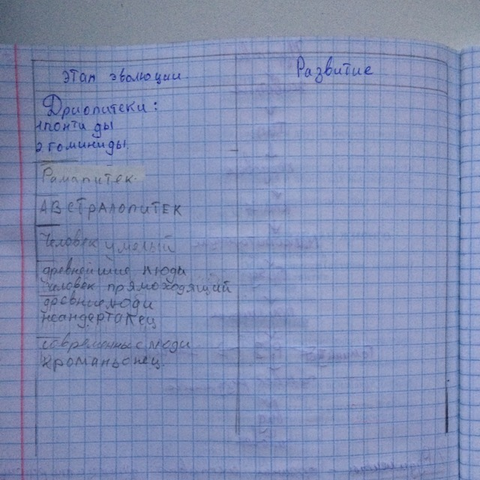 этап эволюции
Развитие
Дриопитеки:
1 понги ды
2 гоминиды
Рамапитек.
АВСТРАЛОПИТЕК
Человек умелый
древнейшие люди
человек прямоходящий
древние люди
неандерталец
современные люди
кроманьонец